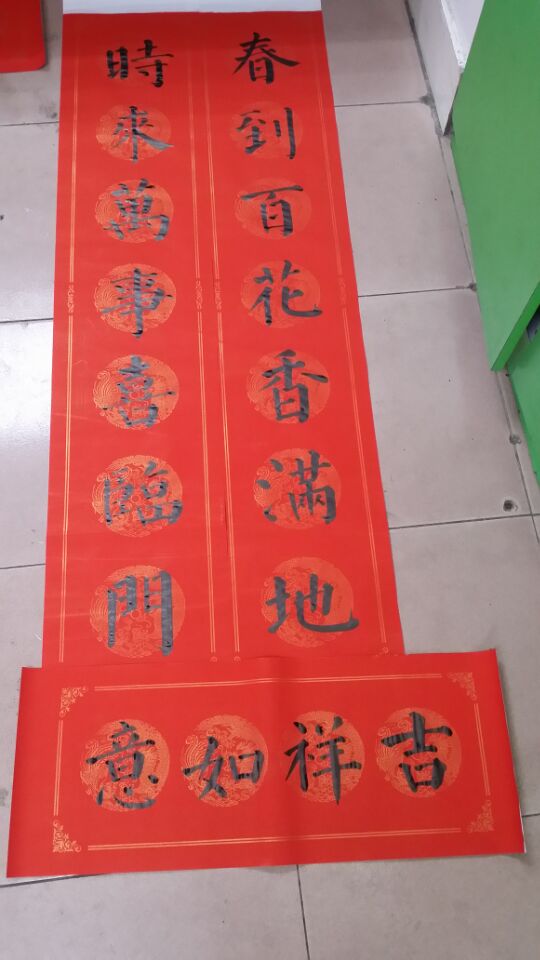 春到百花香滿地
時來萬事喜臨門
吉祥如意